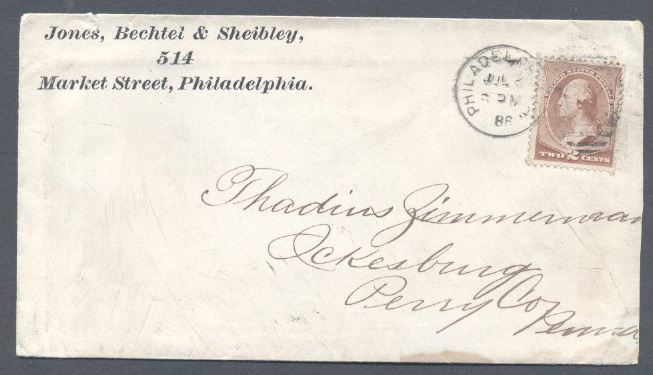 Jones, Bechtel & Sheibley,
514
Market Street, Philadelphia.
PHILADELP
JUL
PM
86
TWO 2 CENTS
Thadius Zimmerman
Ickesburg
Perry Co
Penna